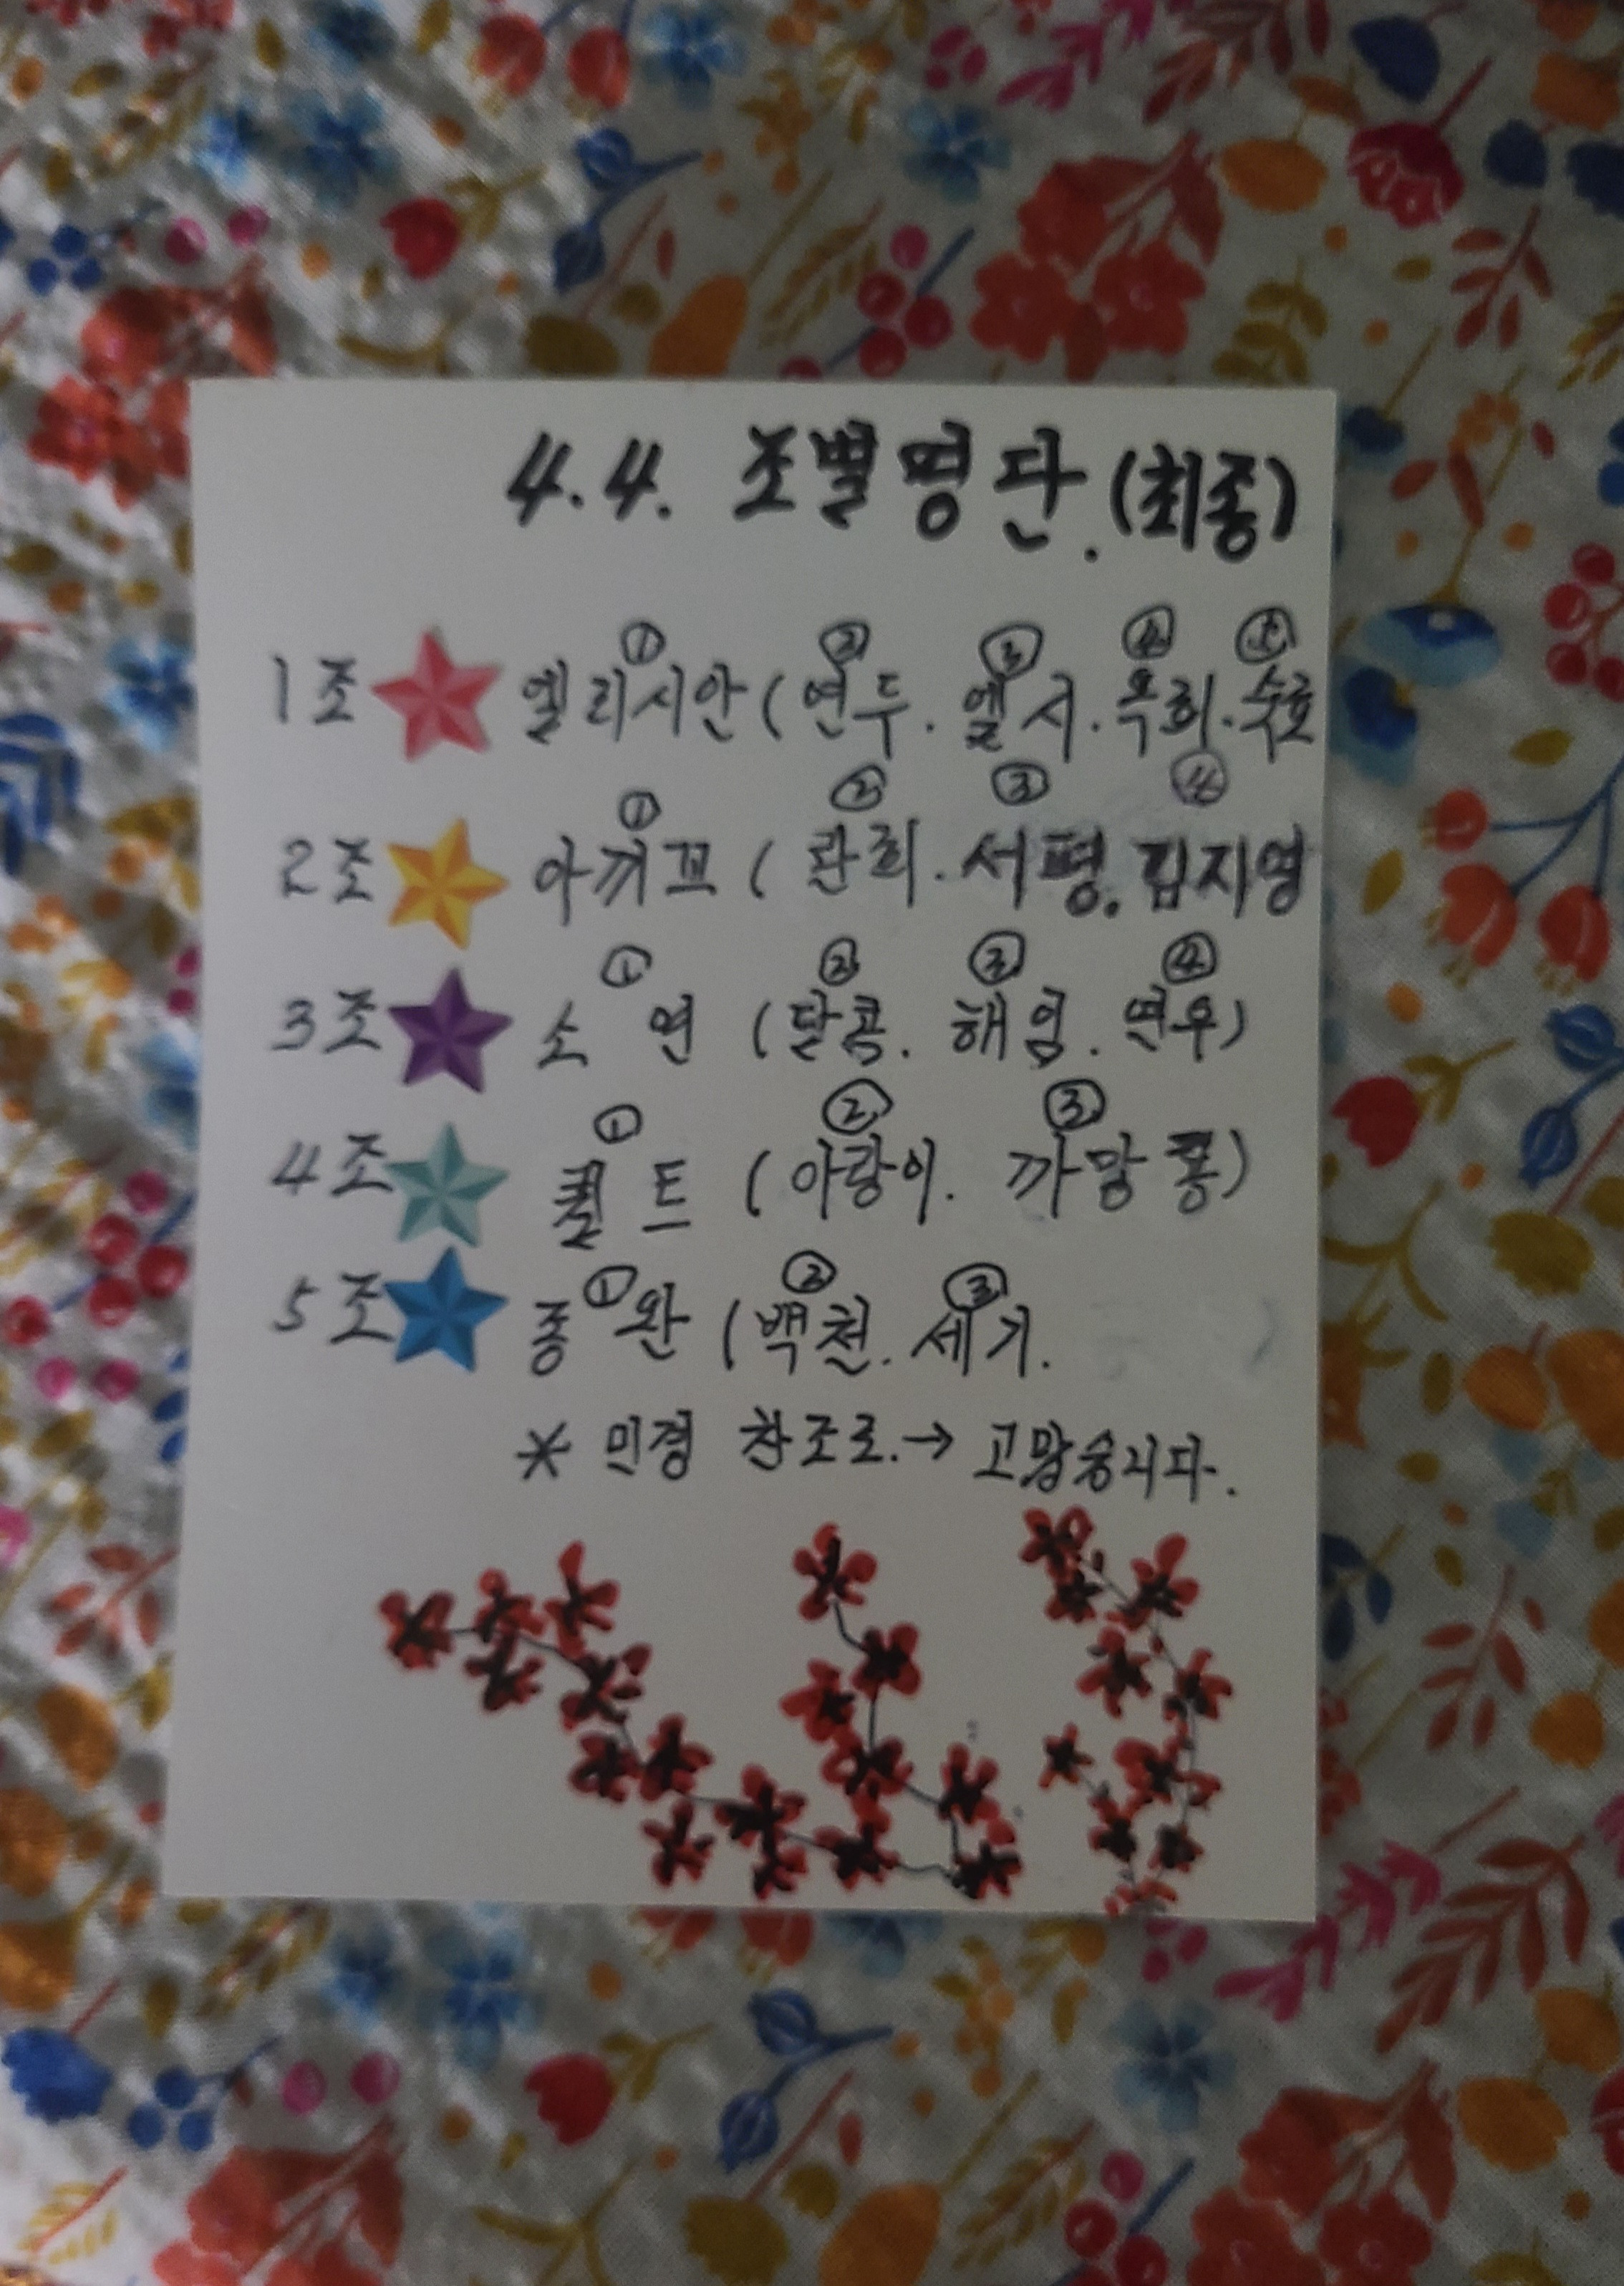 4.4. 조별명단.(최종)
① ② ③ ④ ⑤
1조 엘리시안 (연두. 엘시. 옥희. 수호
① ② ③ ④
2조 아끼꼬 ( 관희. 서평. 김지영
① ② ③ ④
3조 소연 (달콤. 해임. 연우)
① ② ③
4조 퀼트 (아랑이. 까망콩)
① ② ③
5조 종완 (백천. 세기.
* 민경 찬조로.→ 고맙습니다.